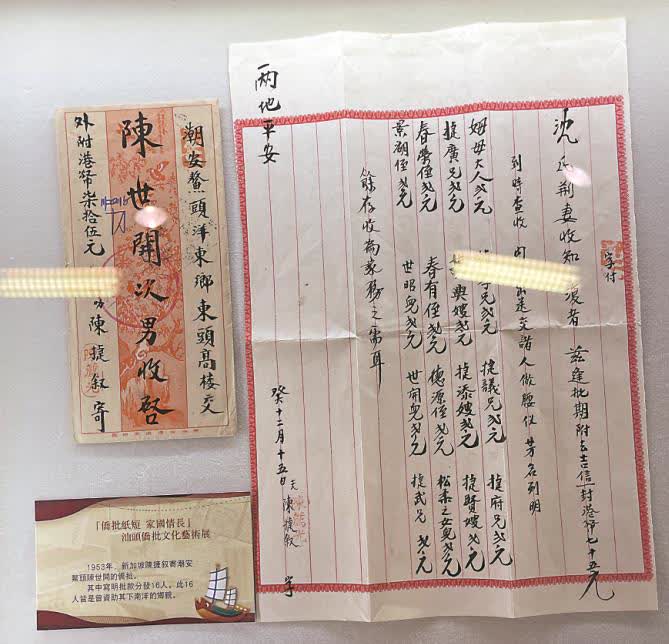 潮安鰲頭洋東鄉東頭高楼交
陳世開次男收啓
外附港幣柒拾伍元
陳捷叙寄
字付
沈氏荆妻收知 者 兹逢批期附去吉信一封港幣七十五元
到時查收 交諸人做腰仪 芳名列明
姆母大人弍元 兄弍元 捷議兄弍元 捷府兄弍元
捷廣兄弍元 興嫂弍元 捷添嫂弍元 捷賢嫂弍元
春勞侄弍元 春有侄弍元 德源侄弍元 松柔之女兒弍元
景潮侄弍元 世昭兒弍元 世開兒弍元 捷武兄弍元
餘存收為家務之需耳
兩地平安
癸十二月十五日 夫 陳捷叙 字
「僑批紙短 家國情長」
汕頭僑批文化藝術展
1953年，新加坡陳捷叙寄潮安
鰲頭陳世開的僑批。
其中寫明批款分發16人，此16
人皆是曾資助其下南洋的鄉親。